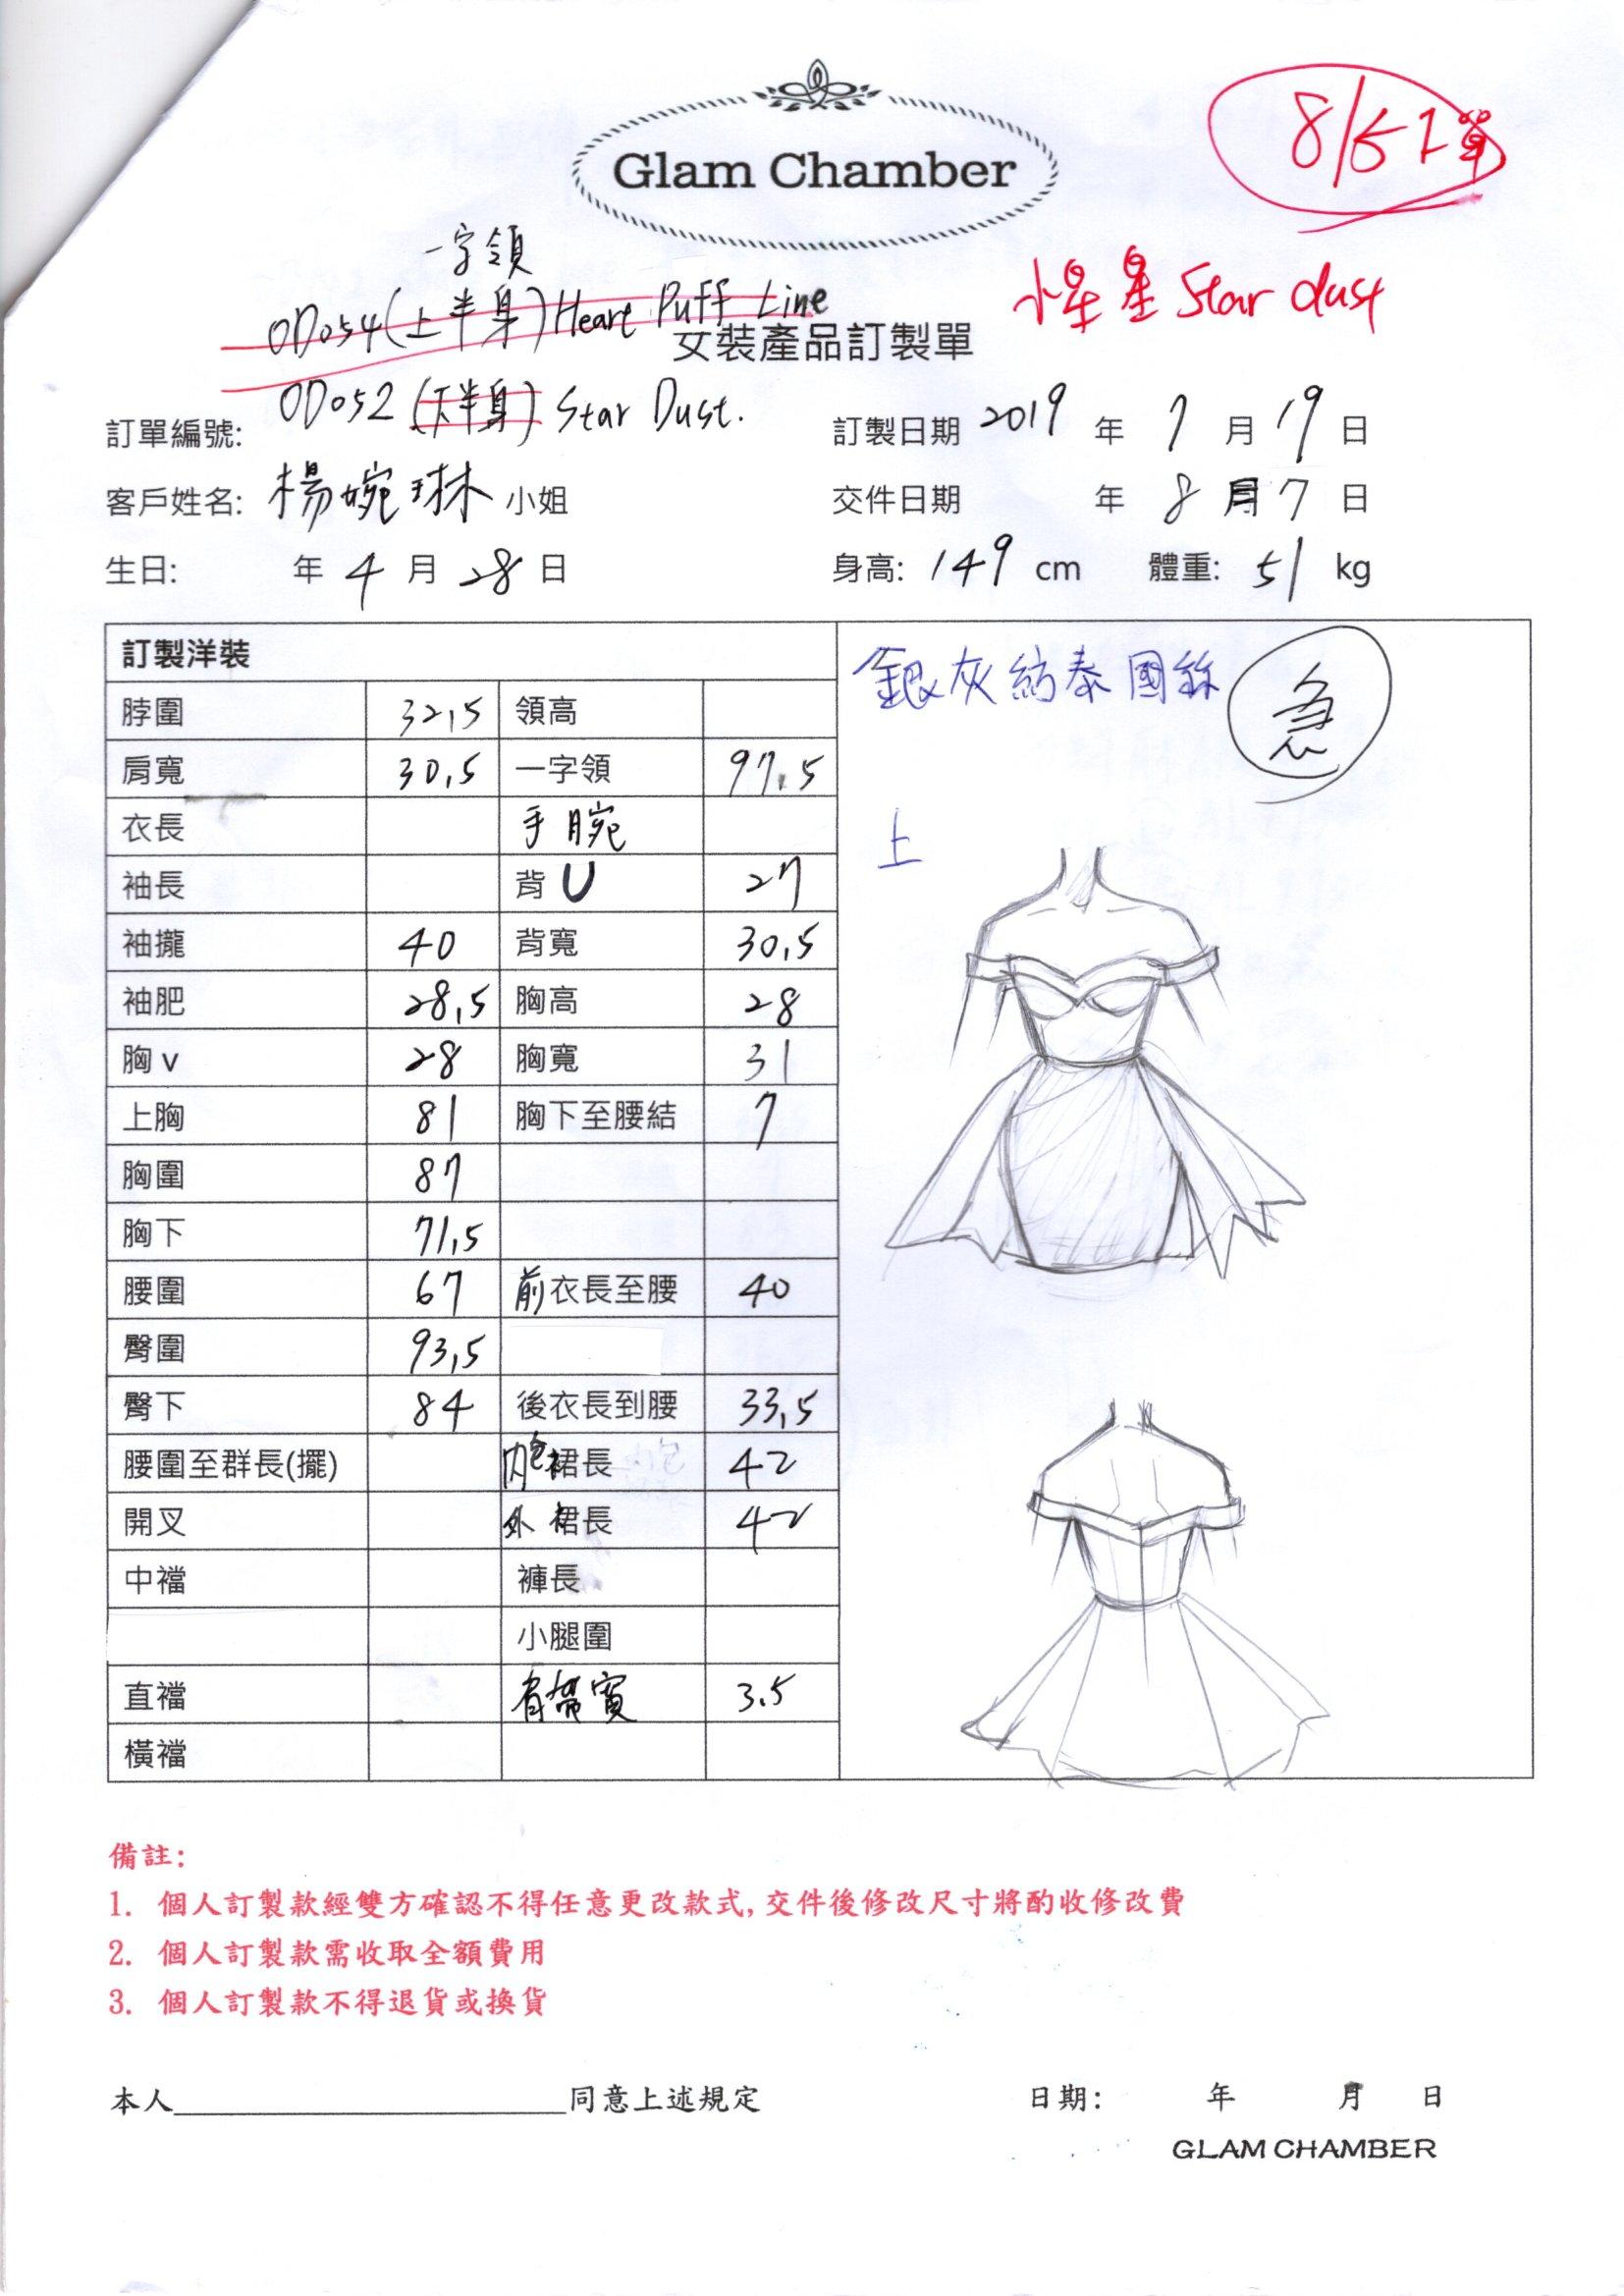 Glam Chamber
8/5 工單
一字領
OD054(上半身) Heart Puff Line
小星星 Star dust
女裝產品訂製單
訂單編號: OD052 (下半身) Star Dust.
訂製日期 2019 年 7 月 19 日
客戶姓名: 楊婉琳 小姐
交件日期 年 8 月 7 日
生日: 年 4 月 28 日
身高: 149 cm 體重: 51 kg
訂製洋裝
銀灰紡泰國絲 急
脖圍 32,5 領高
肩寬 30,5 一字領 97.5
衣長 手腕
上
袖長 背U 27
袖攏 40 背寬 30,5
袖肥 28,5 胸高 28
胸v 28 胸寬 31
上胸 81 胸下至腰結 7
胸圍 87
胸下 71,5
腰圍 67 前衣長至腰 40
臀圍 93,5
臀下 84 後衣長到腰 33,5
腰圍至群長(擺) 內包裙裙長 42
開叉 外裙裙長 42
中襠 褲長
小腿圍
直襠 肩帶寬 3.5
橫襠
備註:
1. 個人訂製款經雙方確認不得任意更改款式, 交件後修改尺寸將酌收修改費
2. 個人訂製款需收取全額費用
3. 個人訂製款不得退貨或換貨
本人 同意上述規定
日期: 年 月 日
GLAM CHAMBER